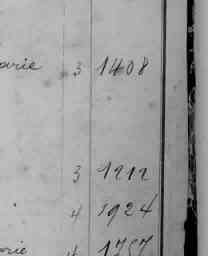 arie 3 1408
3 1212
4 1924
rie 4 1757